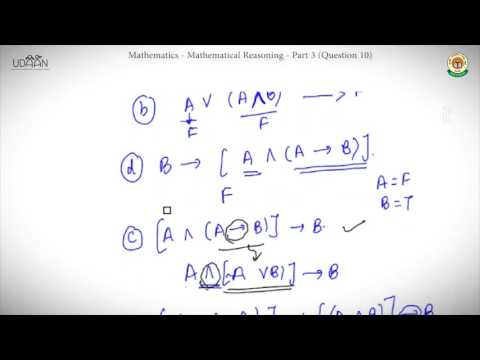 UDAAN
Mathematics - Mathematical Reasoning - Part 3 (Question 10)
(b) A ∨ (A ∧ B) ⟶
F F
(d) B → [A ∧ (A → B)].
F
A = F
B = T
(c) [A ∧ (A → B)] → B. ✓
A ∧ [~A ∨ B)] → B